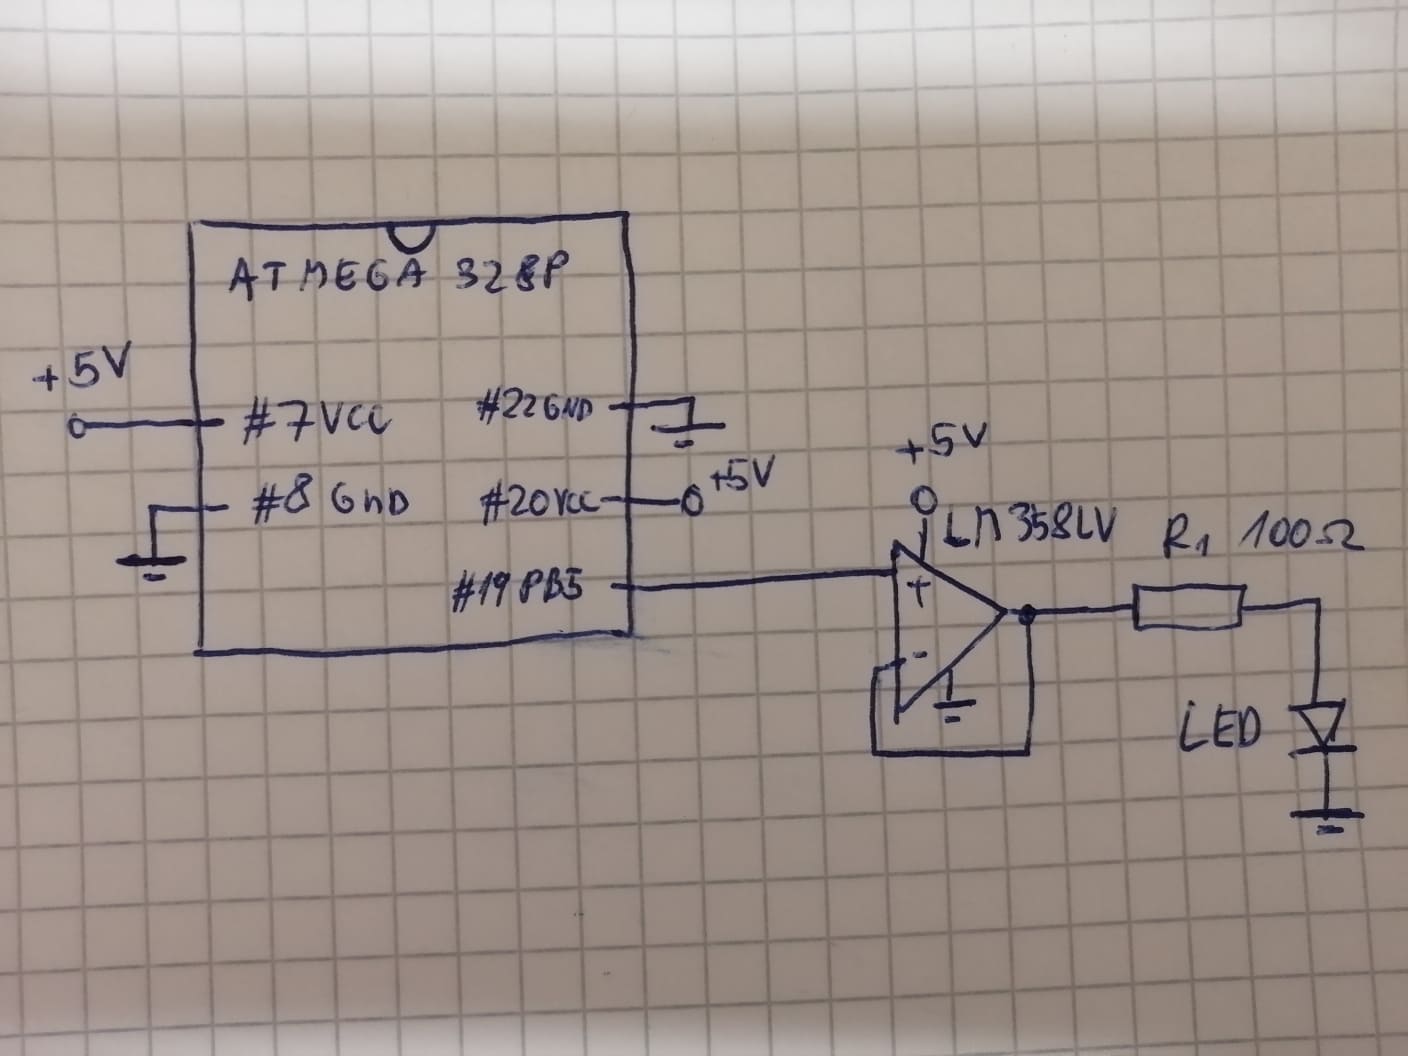 ATMEGA 328P
+5V
#7 VCC
#8 GND
#22 GND
#20 VCC
+5V
#19 PB5
+5V
LM358LV
+
-
R1 100Ω
LED